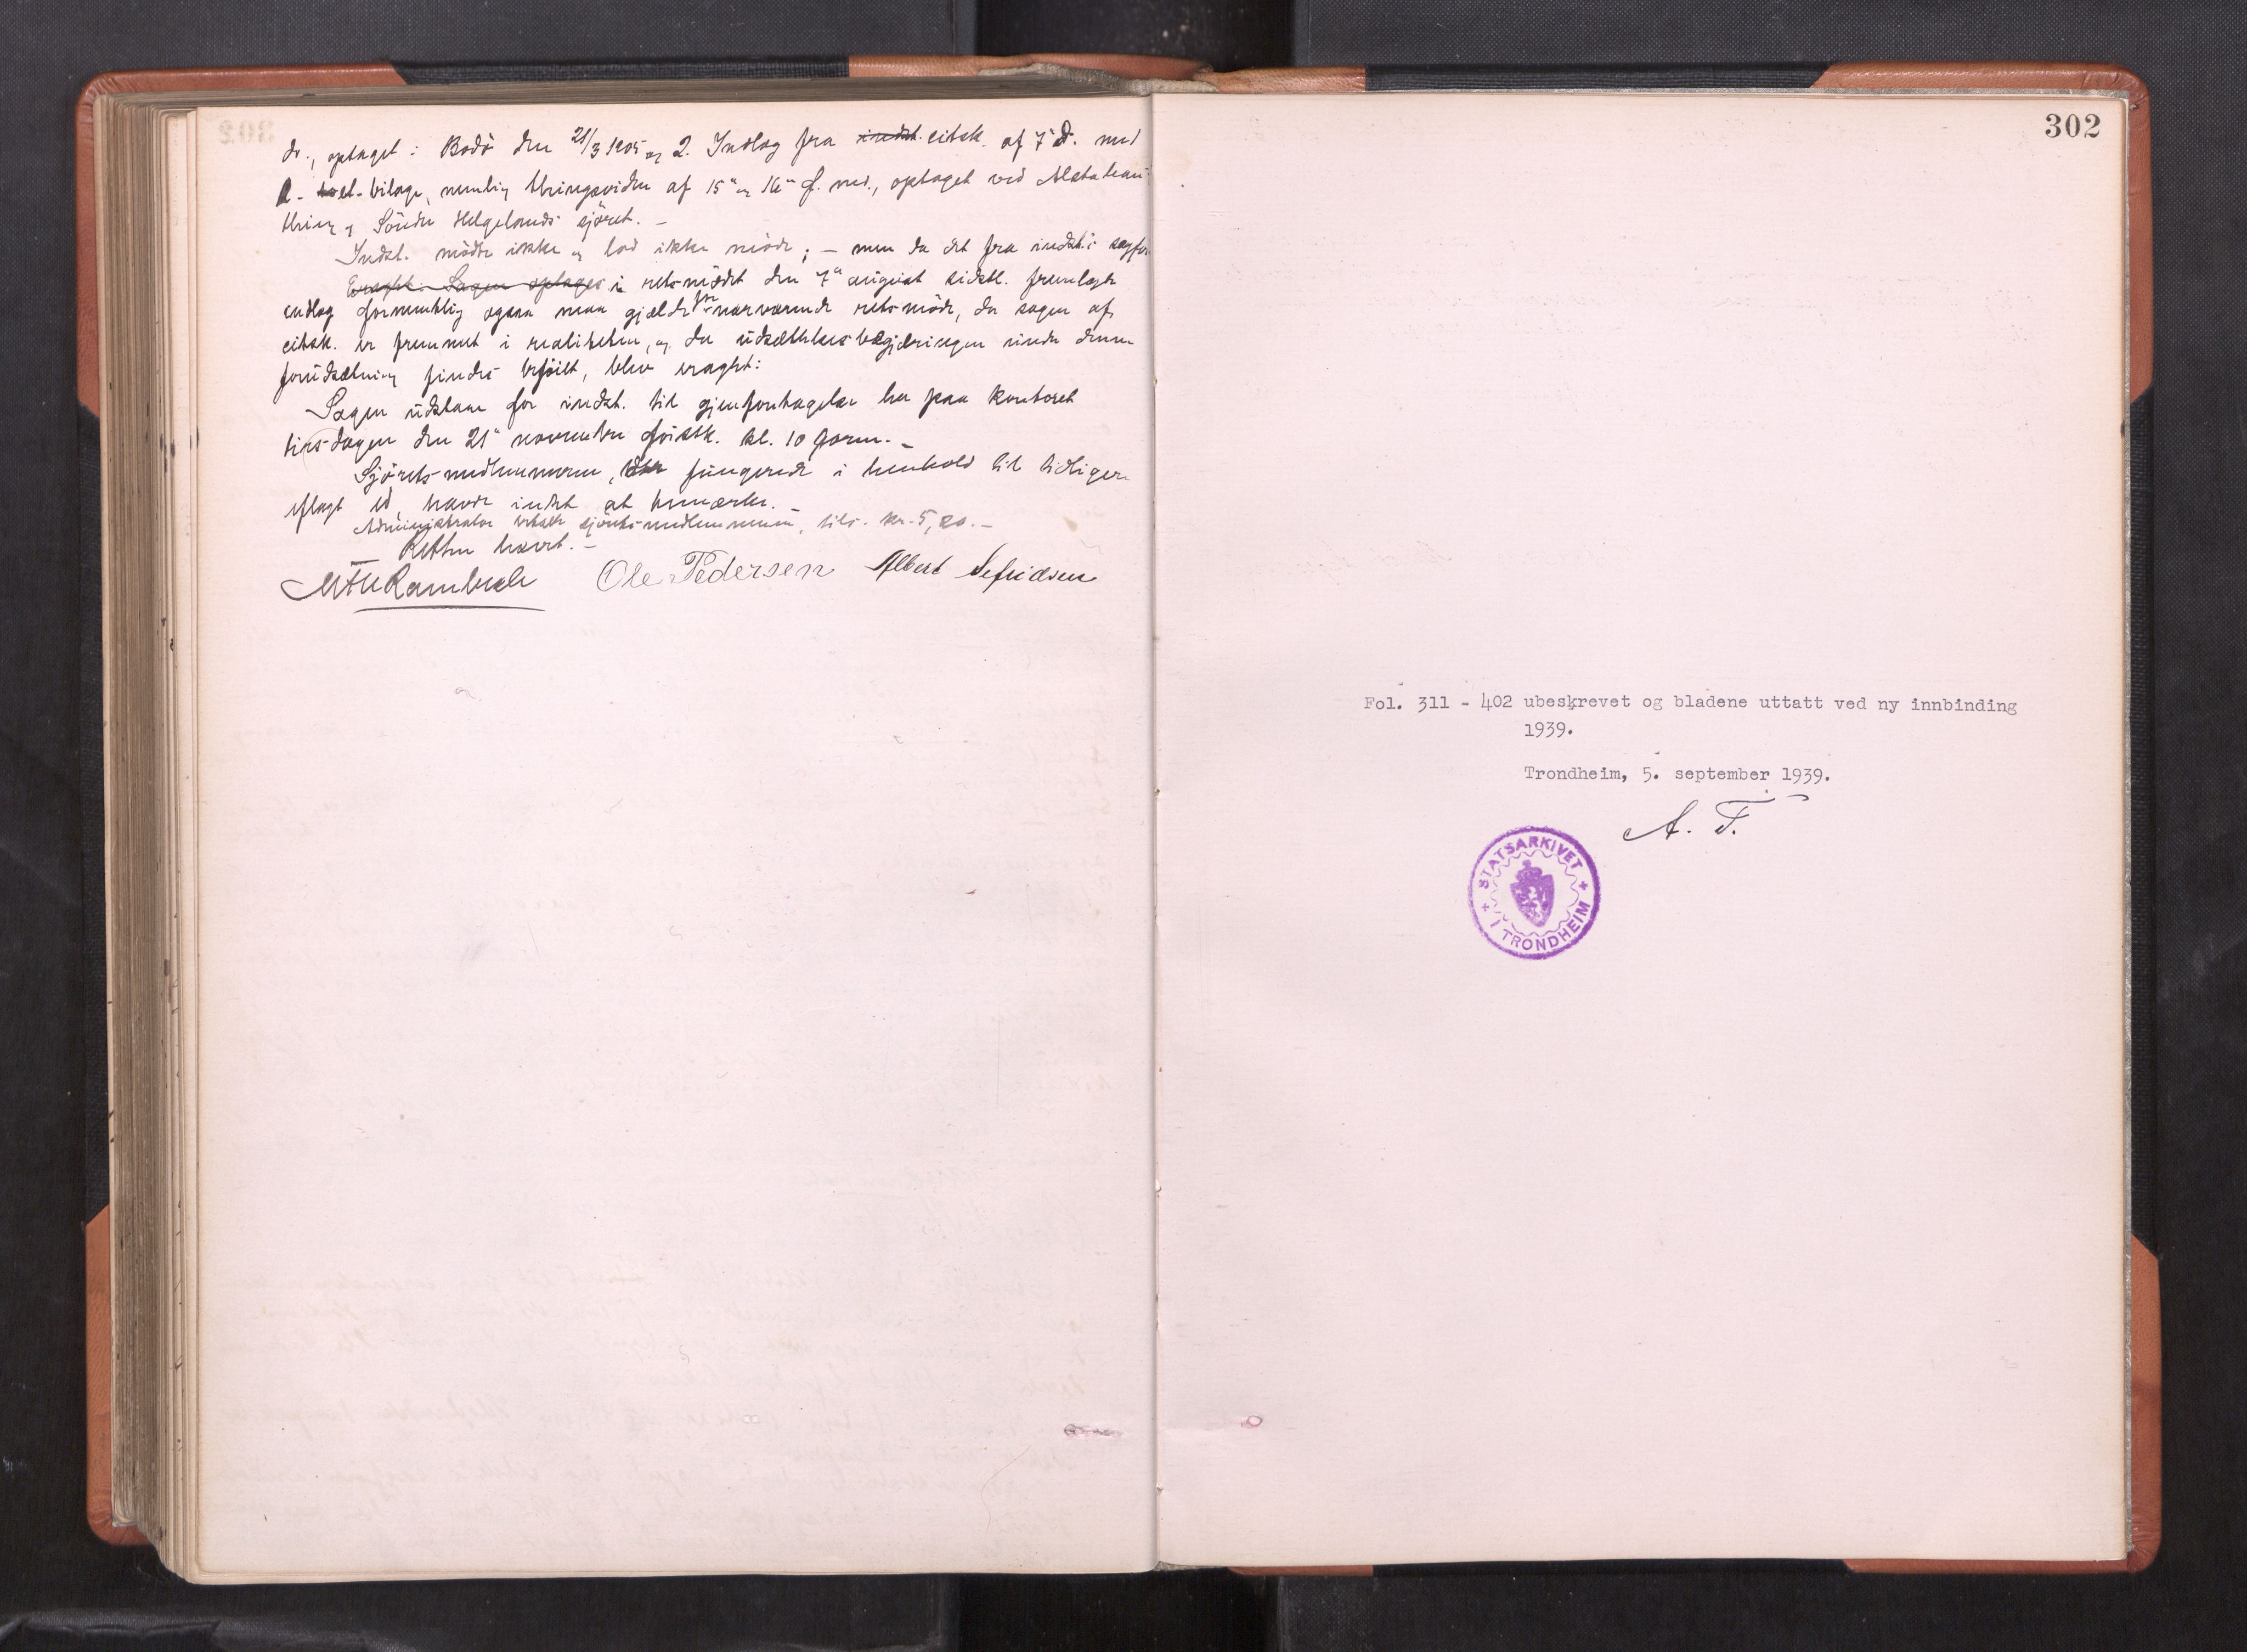 ds., optaget i Bodö den 21/3 1905 og 2. Indlæg fra indst. citsk. af 7" ds. med
bilage, nemlig thingsvidne af 15" og 16" f. md., optaget ved Alstahaug
thing og Söndre Helgelands sjöret. –
Indst. mödte ikke og lod ikke möde; – men da det fra indst.s sagfører
Eragtet: Sagen optages i retsmödet den 7" august sidstl. fremlagte
indlæg formentlig ogsaa maa gjælde for nærværende retsmöde, da sagen af
citsk. er fremmet i realiteten, og da udsættelsesbegjæringen under denne
forudsætning findes beföiet, blev eragtet:
Sagen udstaar for indst. til gjenforetagelse her paa kontoret
tirsdagen den 21" november förstk. kl. 10 form. –
Sjöretsmedlemmerne, fungerende i henhold til tidligere
aflagt ed, havde intet at bemærke. –
Administrator betalte sjöretsmedlemmerne, tils. kr. 5,20. –
Retten hævet. –
Ole Pedersen Albert
302
Fol. 311 - 402 ubeskrevet og bladene uttatt ved ny innbinding
1939.
Trondheim, 5. september 1939.
A. F.
STATSARKIVET I TRONDHEIM